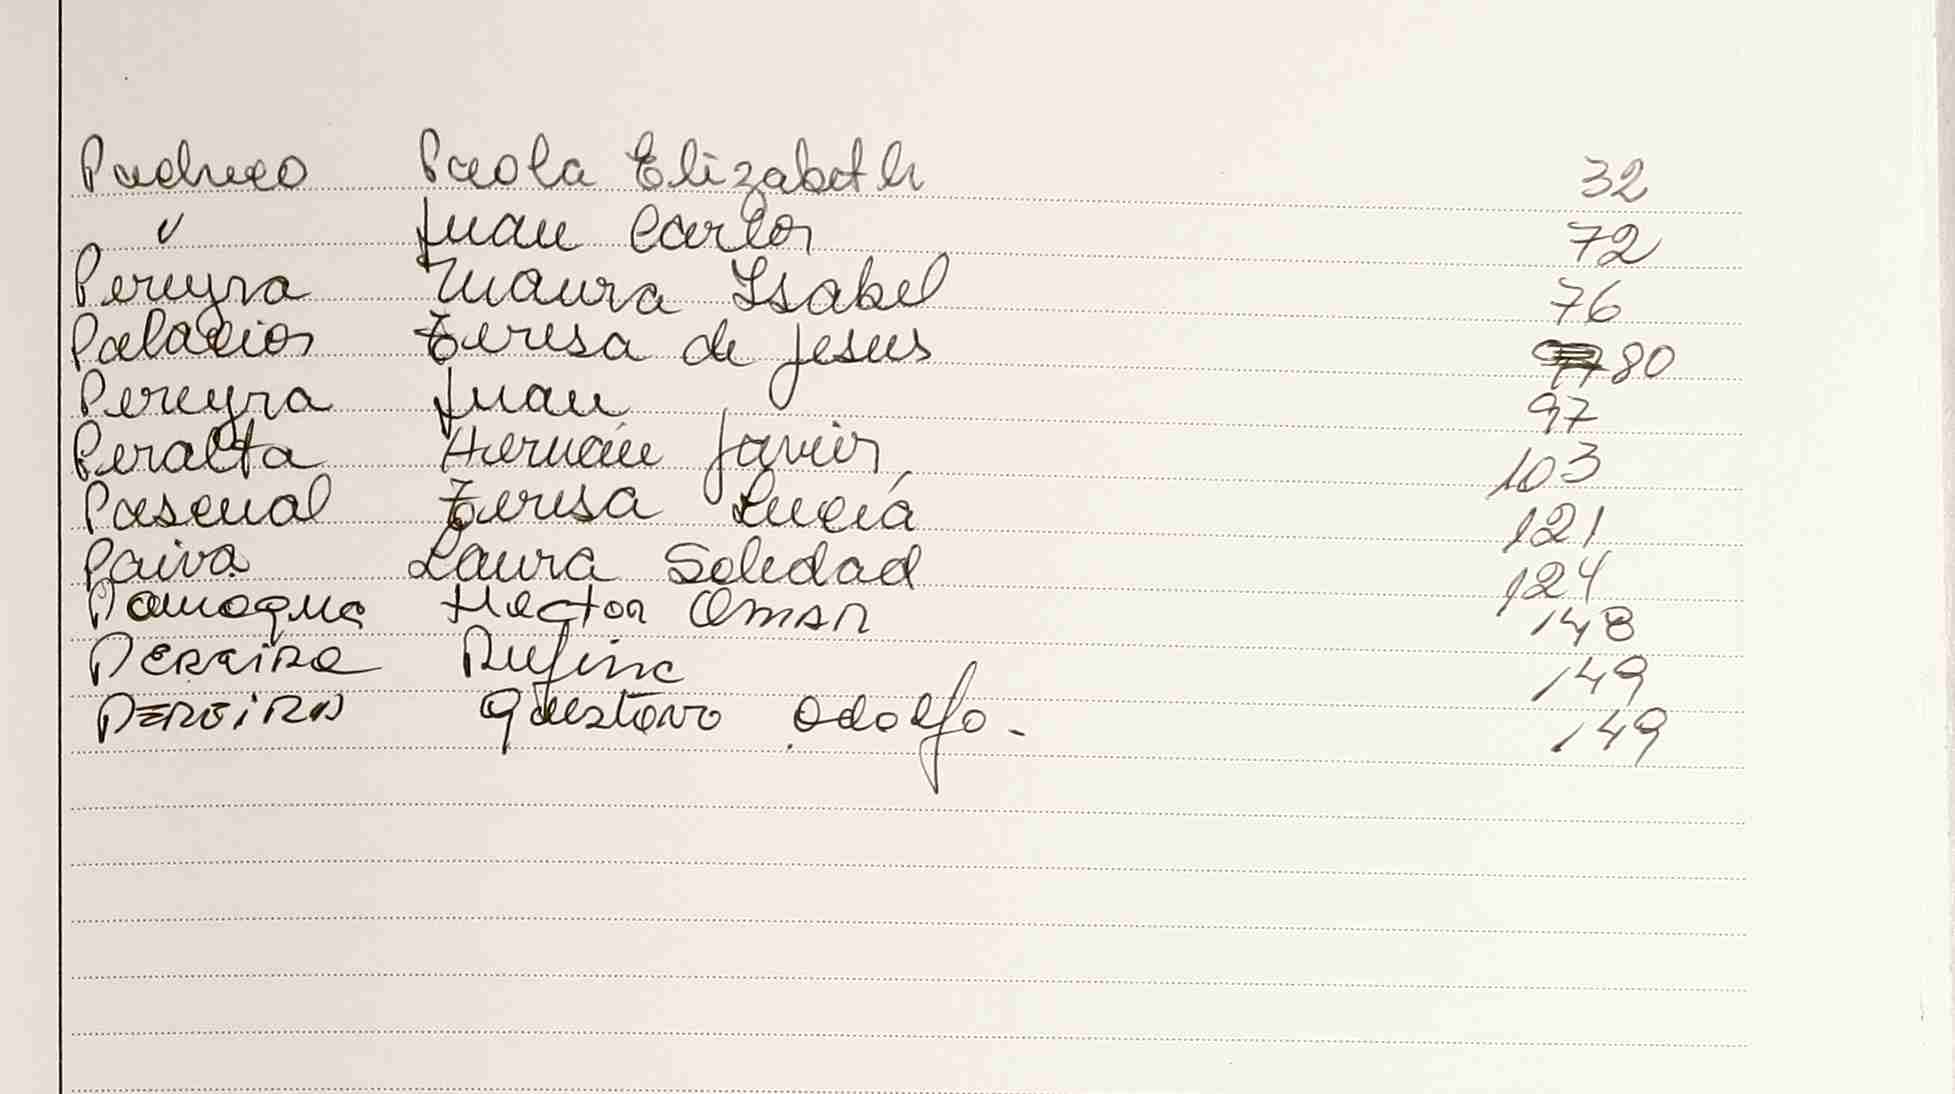 Pacheco Paola Elizabeth 32
" Juan Carlos 72
Pereyra Maura Isabel 76
Palacios Teresa de Jesus 80
Pereyra Juan 97
Peralta Hernán Javier 103
Pascual Teresa Lucía 121
Paiva Laura Soledad 124
Hector Omar 148
Pereira Rufino 149
Pereira Gustavo Adolfo. 149